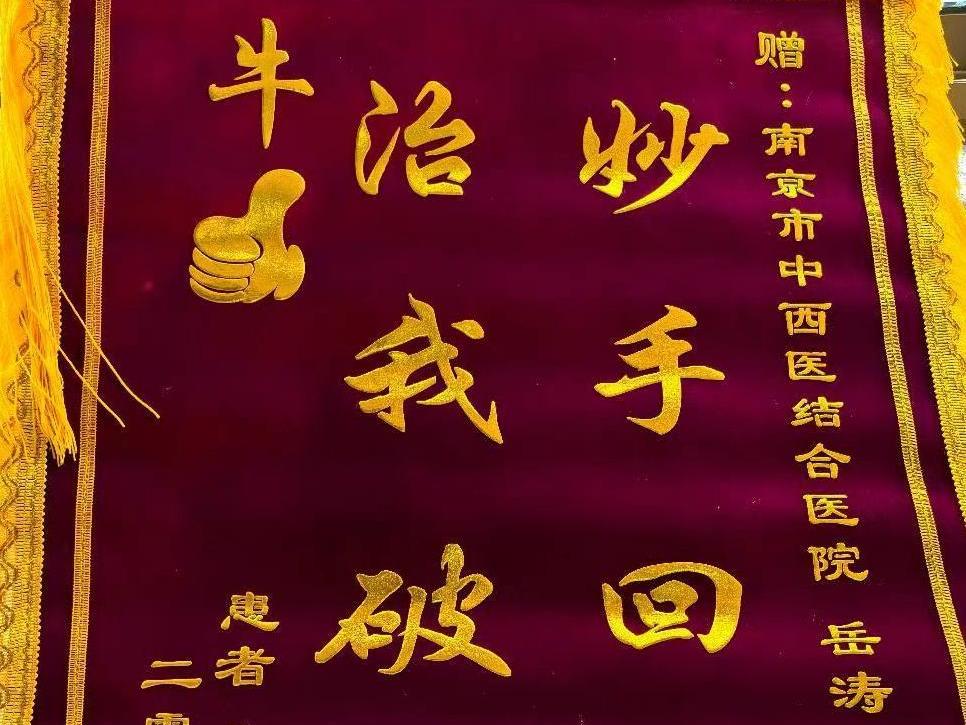 赠：南京市中西医结合医院 岳涛
妙手回
治我破
牛
患者
二